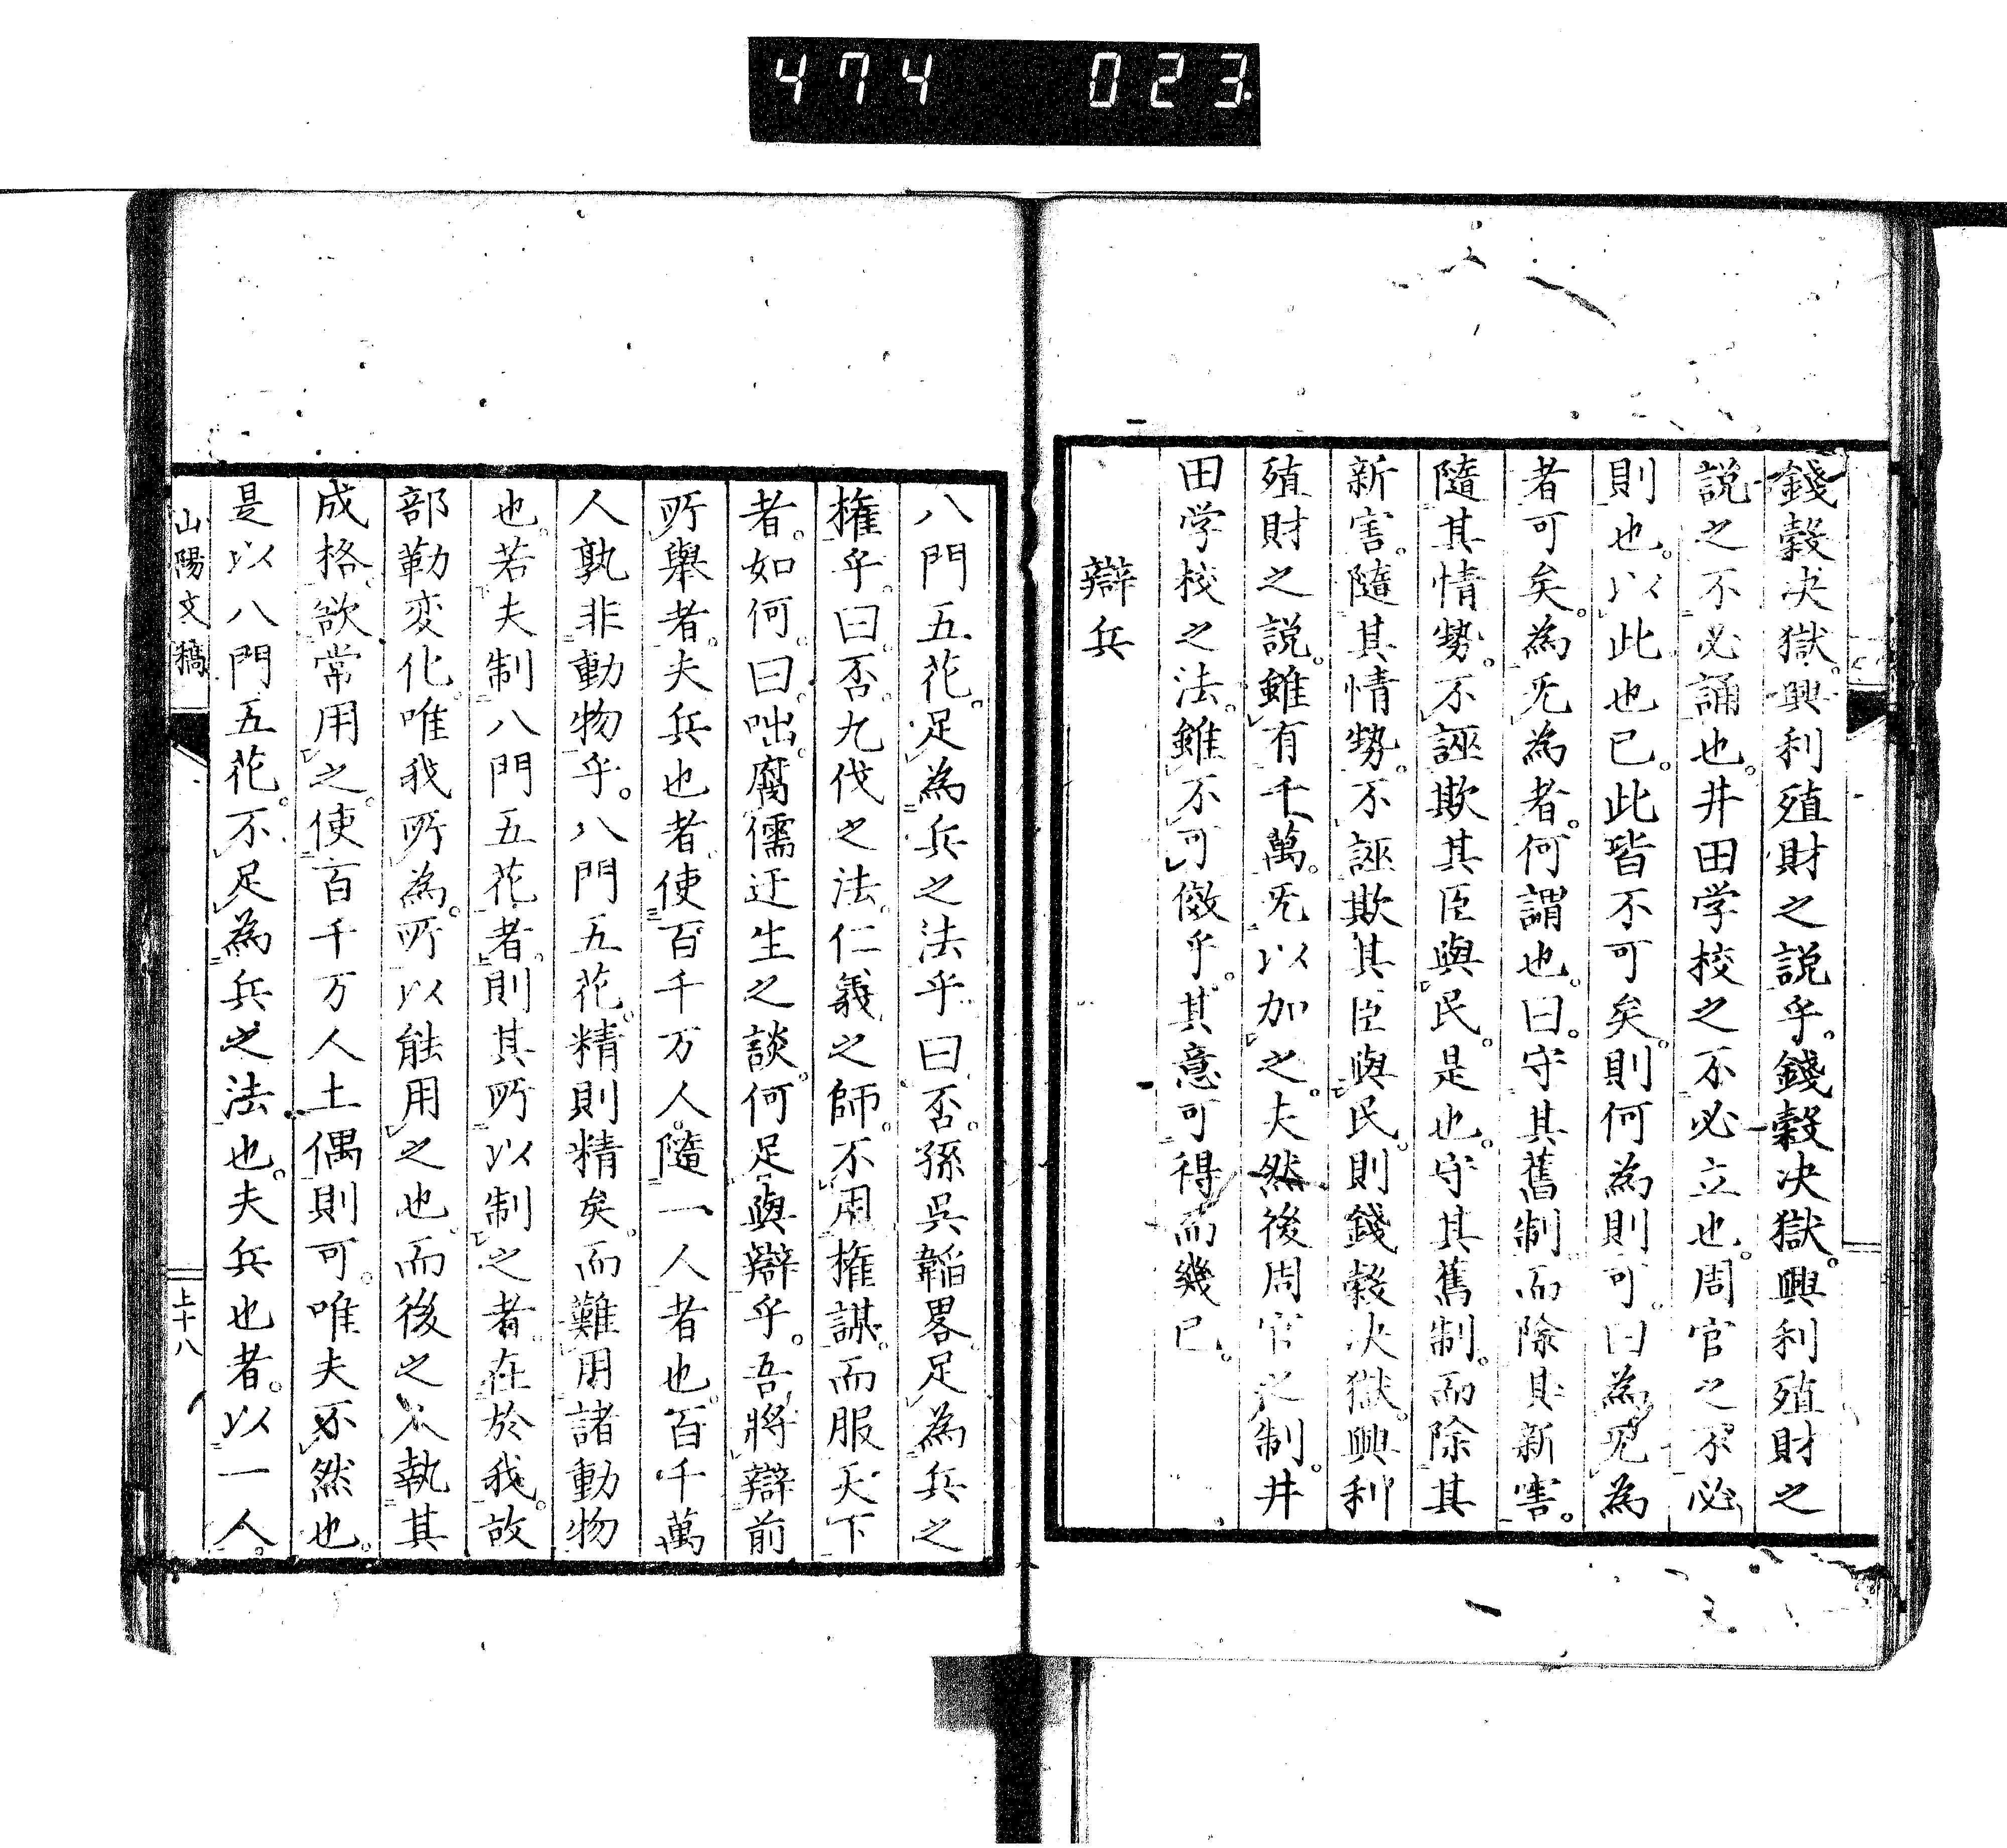 474 023
錢穀决獄。興利殖財之説乎。錢穀决獄。興利殖財之
説之不必誦也。井田学校之不必立也。周官之不必
則也。以此也已。此皆不可矣。則何為則可。曰為旡為
者可矣。為旡為者。何謂也。曰。守其舊制。而除其新害。
隨其情勢。不誣欺其臣與民。是也。守其舊制。而除其
新害。隨其情勢。不誣欺其臣與民。則錢穀决獄。興利
殖財之説。雖有千萬。旡以加之。夫然後周官之制。井
田学校之法。雖不可傚乎。其意可得而幾已。
辯兵
八門五花。足為兵之法乎。曰否。孫呉韜畧。足為兵之
権乎。曰。否。九伐之法。仁義之師。不用権謀。而服天下
者。如何。曰。咄。腐儒迂生之談。何足與辯乎。吾將辯前
所舉者。夫兵也者。使百千万人。隨一人者也。百千萬
人孰非動物乎。八門五花。精則精矣。而難用諸動物
也。若夫制八門五花者。則其所以制之者。在於我。故
部勒変化。唯我所為。所以能用之也。而後之人執其
成格。欲常用之。使百千万人土偶則可。唯夫不然也。
是以八門五花。不足為兵之法也。夫兵也者。以一人。
山陽文稿
上十八